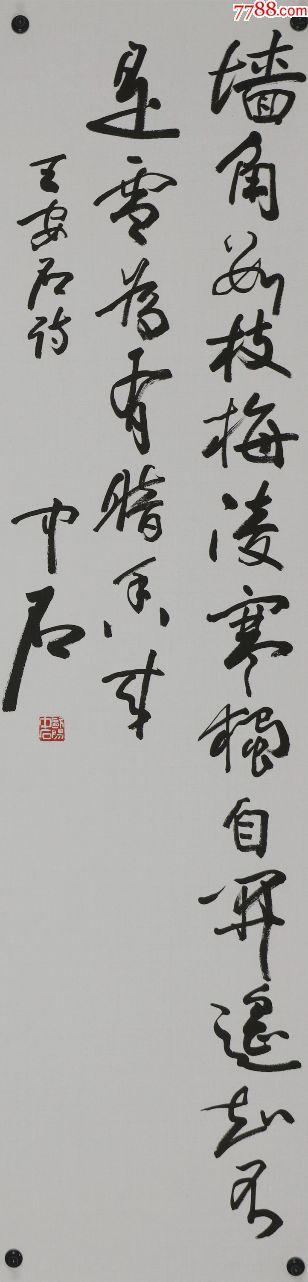 7788.com
墙角数枝梅凌寒独自开遥知不
是雪为有暗香来
王安石诗
中石
欧阳中石